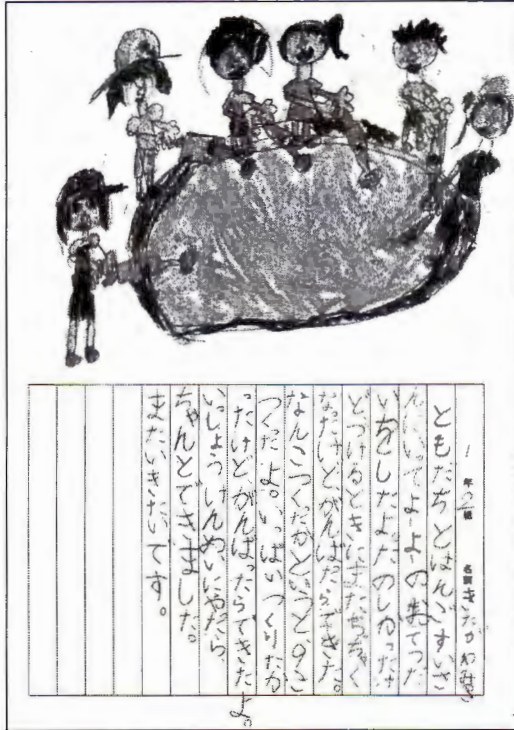 1年2組 名前 きたがわ
ともだちとはんごすいさ
んにいってよーよーのまてつた
いちをしだよたのしかったけ
どつけるときにまたちちゃく
なたけどがんばたらできた。
なんこつくたかというと、9こ
つくたよ。いっぱいつくりたか
ったけど、がんばったらできたよ。
いっしょうけんめいにやたら、
ちゃんとできました。
またいきたいです。